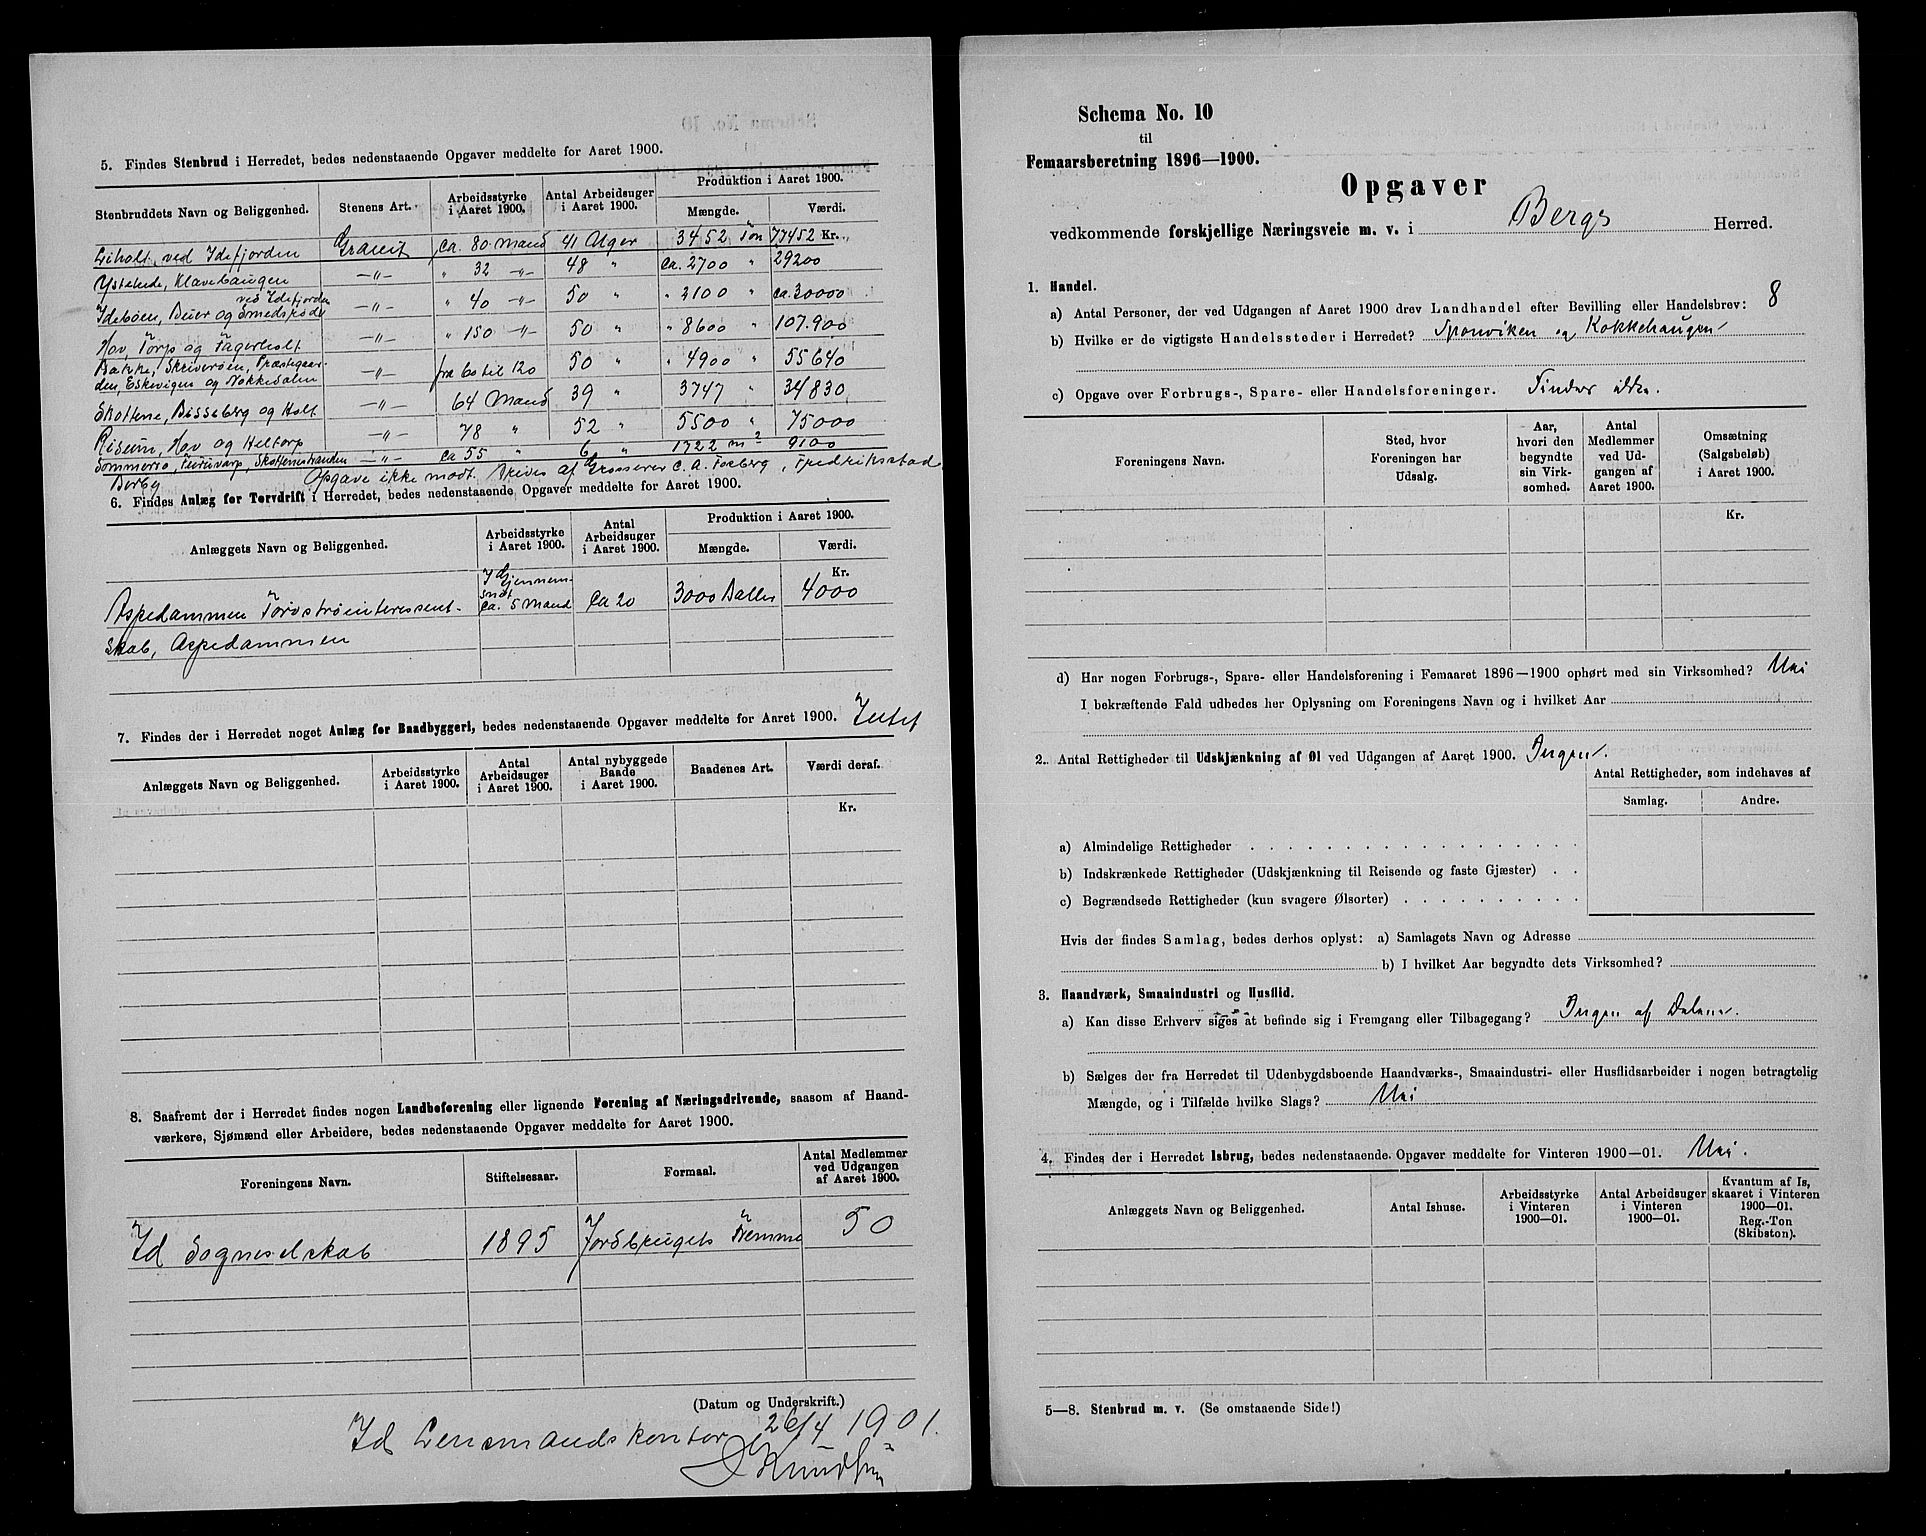 5. Findes Stenbrud i Herredet, bedes nedenstaaende Opgaver meddelte for Aaret 1900.
Stenbruddets Navn og Beliggenhed. Stenens Art. Arbeidsstyrke i Aaret 1900. Antal Arbeidsuger i Aaret 1900. Produktion i Aaret 1900. Mængde. Værdi.
Liholt, ved Idefjorden Granit ca. 80 Mand 41 Uger 3452 Ton 77452 Kr.
Ystehede, Klavehaugen —"— " 32 —"— 48 " ca. 2700 " 29200
ved Idefjorden
Ideboen, Buer og —"— " 40 —"— 50 " " 2100 " ca 30000
Hov, Torp og Fagerholt —"— " 150 —"— 50 " " 8600 " 107.900
Bakke, Skriverøen, Præstegaar-
den, Eskevigen og Nokkedalen —"— fra 60 til 120 50 " " 4900 " 55640
Skottene, Bisseberg og Holt —"— 64 Mand 39 " 3747 " 34830
Risum, Hov og Heltorp —"— 78 " 52 " 5500 " 75000
Sommerrø, Skottenestranden —"— ca 55 " 6 " 1722 m² 9100
Berby Opgave ikke modt. Drives af Grosserer C. A. Forberg, Fredriksstad
6. Findes Anlæg for Torvdrift i Herredet, bedes nedenstaaende Opgaver meddelte for Aaret 1900.
Anlæggets Navn og Beliggenhed. Arbeidsstyrke i Aaret 1900. Antal Arbeidsuger i Aaret 1900. Produktion i Aaret 1900. Mængde. Værdi.
Kr.
Aspedammen Torvstrøinteressent- I Gjennem- snit ca. 5 Mand ca 20 3000 Baller 4000
skab, Aspedammen
7. Findes der i Herredet noget Anlæg for Baadbyggeri, bedes nedenstaaende Opgaver meddelte for Aaret 1900. Intet
Anlæggets Navn og Beliggenhed. Arbeidsstyrke i Aaret 1900. Antal Arbeidsuger i Aaret 1900. Antal nybyggede Baade i Aaret 1900. Baadenes Art. Værdi deraf.
Kr.
8. Saafremt der i Herredet findes nogen Landboforening eller lignende Forening af Næringsdrivende, saasom af Haand-
værkere, Sjømænd eller Arbeidere, bedes nedenstaaende Opgaver meddelte for Aaret 1900.
Foreningens Navn. Stiftelsesaar. Formaal. Antal Medlemmer ved Udgangen af Aaret 1900.
Id Sogneselskab 1895 Jordbrugets Fremme 50
(Datum og Underskrift.)
Id Lensmandskontor 26/4 1901.
Knudsen
Schema No. 10
til
Femaarsberetning 1896—1900.
Opgaver
vedkommende forskjellige Næringsveie m. v. i Bergs Herred.
1. Handel.
a) Antal Personer, der ved Udgangen af Aaret 1900 drev Landhandel efter Bevilling eller Handelsbrev: 8
b) Hvilke er de vigtigste Handelssteder i Herredet? Sponviken og Kokkehaugen
c) Opgave over Forbrugs-, Spare- eller Handelsforeninger. Findes ikke.
Foreningens Navn. Sted, hvor Foreningen har Udsalg. Aar, hvori den begyndte sin Virk- somhed. Antal Medlemmer ved Ud- gangen af Aaret 1900. Omsætning (Salgsbeløb) i Aaret 1900.
Kr.
d) Har nogen Forbrugs-, Spare- eller Handelsforening i Femaaret 1896—1900 ophørt med sin Virksomhed? Nei
I bekræftende Fald udbedes her Oplysning om Foreningens Navn og i hvilket Aar
2. Antal Rettigheder til Udskjænkning af Øl ved Udgangen af Aaret 1900. Ingen.
Antal Rettigheder, som indehaves af
Samlag. Andre.
a) Almindelige Rettigheder
b) Indskrænkede Rettigheder (Udskjænkning til Reisende og faste Gjæster)
c) Begrændsede Rettigheder (kun svagere Ølsorter)
Hvis der findes Samlag, bedes derhos oplyst: a) Samlagets Navn og Adresse
b) I hvilket Aar begyndte dets Virksomhed?
3. Haandværk, Smaaindustri og Husflid.
a) Kan disse Erhverv siges at befinde sig i Fremgang eller Tilbagegang? Ingen af Delene.
b) Sælges der fra Herredet til Udenbygdsboende Haandværks-, Smaaindustri- eller Husflidsarbeider i nogen betragtelig
Mængde, og i Tilfælde hvilke Slags? Nei
4. Findes der i Herredet Isbrug, bedes nedenstaaende Opgaver meddelte for Vinteren 1900—01. Nei.
Anlæggets Navn og Beliggenhed. Antal Ishuse. Arbeidsstyrke i Vinteren 1900—01. Antal Arbeidsuger i Vinteren 1900—01. Kvantum af Is, skaaret i Vinteren 1900—01. Reg.-Ton (Skibston).
5—8. Stenbrud m. v. (Se omstaaende Side!)